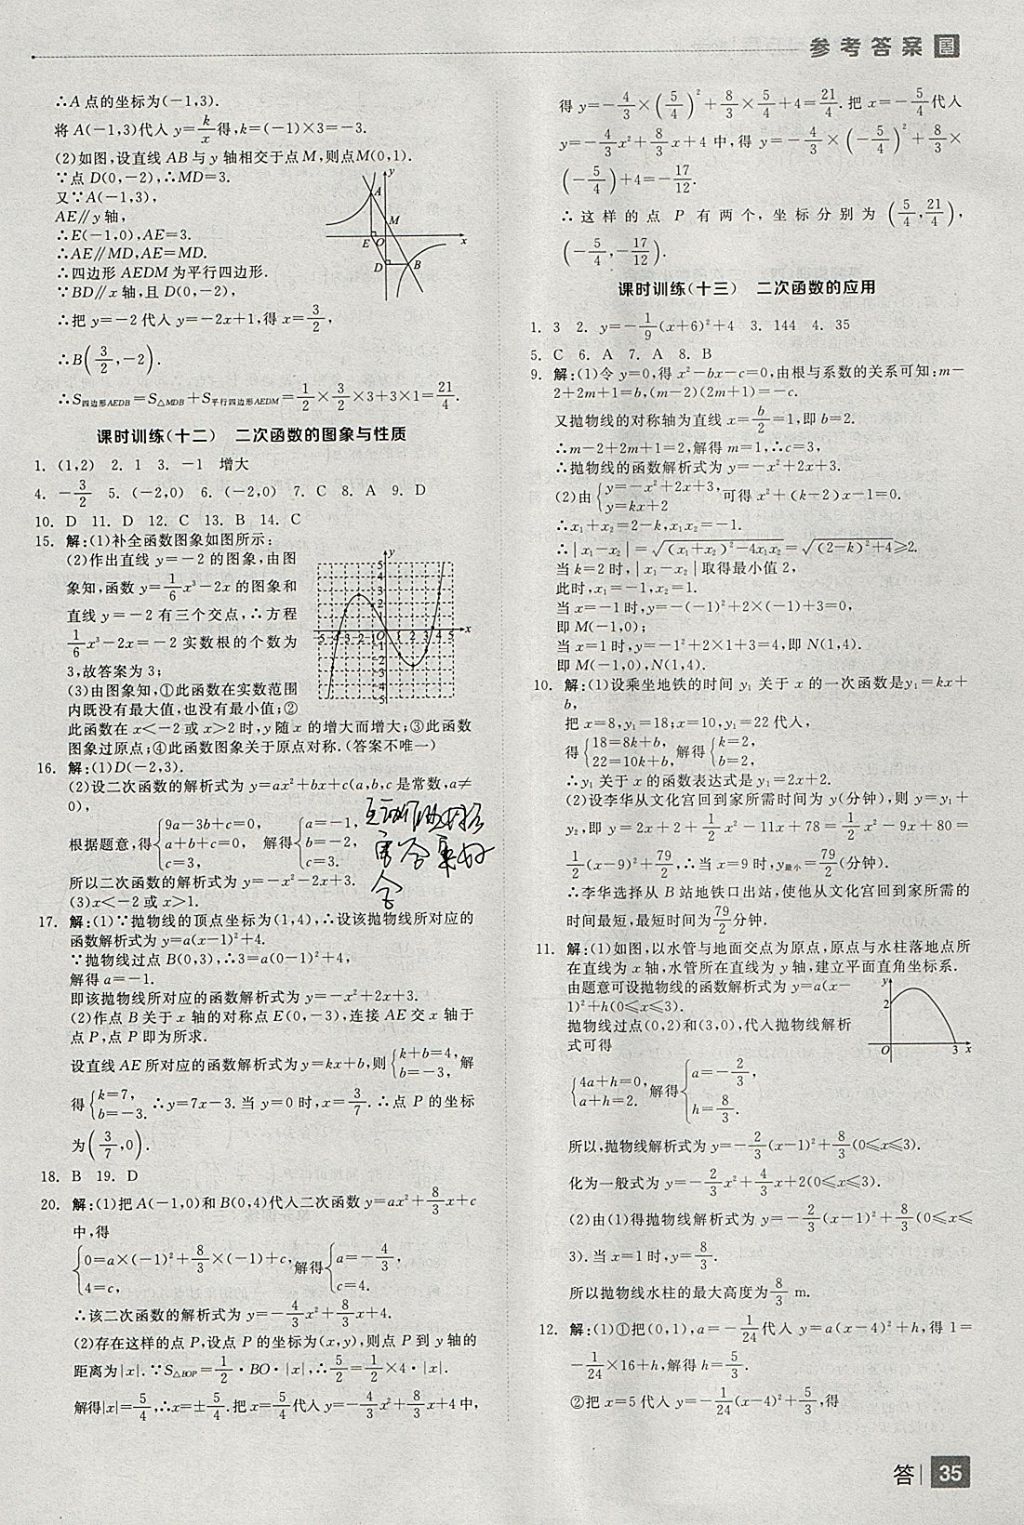 参考答案
∴A点的坐标为(-1,3).
将A(-1,3)代入y=k/x得,k=(-1)×3=-3.
(2)如图,设直线AB与y轴相交于点M,则点M(0,1).
∵点D(0,-2),∴MD=3.
又∵A(-1,3),
AE∥y轴,
∴E(-1,0),AE=3.
∴AE∥MD,AE=MD.
∴四边形AEDM为平行四边形.
∵BD∥x轴,且D(0,-2),
∴把y=-2代入y=-2x+1,得x=3/2,
∴B(3/2,-2).
∴S四边形AEDB=S△MDB+S平行四边形AEDM=1/2×3/2×3+3×1=21/4.
y
A
M
E O x
D B
课时训练(十二) 二次函数的图象与性质
1. (1,2) 2. 1 3. -1 增大
4. -3/2 5. (-2,0) 6. (-2,0) 7. C 8. A 9. D
10. D 11. D 12. C 13. B 14. C
15. 解:(1)补全函数图象如图所示:
(2)作出直线y=-2的图象,由图
象知,函数y=1/6x³-2x的图象和
直线y=-2有三个交点,∴方程
1/6x³-2x=-2实数根的个数为
3,故答案为3;
(3)由图象知,①此函数在实数范围
内既没有最大值,也没有最小值;②
此函数在x<-2或x>2时,y随x的增大而增大;③此函数
图象过原点;④此函数图象关于原点对称.(答案不唯一)
16. 解:(1)D(-2,3).
(2)设二次函数的解析式为y=ax²+bx+c(a,b,c是常数,a≠
0),
根据题意,得{9a-3b+c=0, a+b+c=0, c=3, 解得{a=-1, b=-2, c=3.
所以二次函数的解析式为y=-x²-2x+3.
(3)x<-2或x>1.
17. 解:(1)∵抛物线的顶点坐标为(1,4),∴设该抛物线所对应的
函数解析式为y=a(x-1)²+4.
∵抛物线过点B(0,3),∴3=a(0-1)²+4,
解得a=-1.
即该抛物线所对应的函数解析式为y=-x²+2x+3.
(2)作点B关于x轴的对称点E(0,-3),连接AE交x轴于
点P,点P即为所求.
设直线AE所对应的函数解析式为y=kx+b,则{k+b=4, b=-3, 解
得{k=7, b=-3. ∴y=7x-3.当y=0时,x=3/7.∴点P的坐标
为(3/7,0).
18. B 19. D
20. 解:(1)把A(-1,0)和B(0,4)代入二次函数y=ax²+8/3x+c
中,得
{0=a×(-1)²+8/3×(-1)+c, 4=c, 解得{a=-4/3, c=4.
∴该二次函数的解析式为y=-4/3x²+8/3x+4.
(2)存在这样的点P,设点P的坐标为(x,y),则点P到y轴的
距离为|x|.∵S△BOP=1/2·BO·|x|,∴5/2=1/2×4·|x|.
解得|x|=5/4,∴x=±5/4.把x=5/4代入y=-4/3x²+8/3x+4中,
得y=-4/3×(5/4)²+8/3×5/4+4=21/4.把x=-5/4代入
y=-4/3x²+8/3x+4中,得y=-4/3×(-5/4)²+8/3×
(-5/4)+4=-17/12.
∴这样的点P有两个,坐标分别为(5/4,21/4),
(-5/4,-17/12).
课时训练(十三) 二次函数的应用
1. 3 2. y=-1/9(x+6)²+4 3. 144 4. 35
5. C 6. A 7. A 8. B
9. 解:(1)令y=0,得x²-bx-c=0,由根与系数的关系可知:m-
2+2m+1=b,(m-2)(2m+1)=-c.
又抛物线的对称轴为直线x=b/2=1,即b=2.
∴m-2+2m+1=2,解得m=1,∴c=3,
∴抛物线的函数解析式为y=-x²+2x+3.
(2)由{y=-x²+2x+3, y=kx+2 可得x²+(k-2)x-1=0.
∴x₁+x₂=2-k,x₁x₂=-1.
∴|x₁-x₂|=√((x₁+x₂)²-4x₁x₂)=√((2-k)²+4)≥2.
当k=2时,|x₁-x₂|取得最小值2,
此时,x₁=-1,x₂=1.
当x=-1时,y=-(-1)²+2×(-1)+3=0,
即M(-1,0);
当x=1时,y=-1²+2×1+3=4,即N(1,4).
即M(-1,0),N(1,4).
10. 解:(1)设乘坐地铁的时间y₁关于x的一次函数是y₁=kx+
b,
把x=8,y₁=18;x=10,y₁=22代入,
得{18=8k+b, 22=10k+b, 解得{k=2, b=2,
∴y₁关于x的函数表达式是y₁=2x+2.
(2)设李华从文化宫回到家所需时间为y(分钟),则y=y₁+
y₂,即y=2x+2+1/2x²-11x+78=1/2x²-9x+80=
1/2(x-9)²+79/2,∴当x=9时,y最小=79/2(分钟).
∴李华选择从B站地铁口出站,使他从文化宫回到家所需的
时间最短,最短时间为79/2分钟.
11. 解:(1)如图,以水管与地面交点为原点,原点与水柱落地点所
在直线为x轴,水管所在直线为y轴,建立平面直角坐标系.
由题意可设抛物线的函数解析式为y=a(x-
1)²+h(0≤x≤3).
抛物线过点(0,2)和(3,0),代入抛物线解析
式可得
{4a+h=0, a+h=2. 解得{a=-2/3, h=8/3.
y
2
O 3 x
所以,抛物线解析式为y=-2/3(x-1)²+8/3(0≤x≤3).
化为一般式为y=-2/3x²+4/3x+2(0≤x≤3).
(2)由(1)得抛物线解析式为y=-2/3(x-1)²+8/3(0≤x≤
3).当x=1时,y=8/3.
所以抛物线水柱的最大高度为8/3 m.
12. 解:(1)①把(0,1),a=-1/24代入y=a(x-4)²+h,得1=
-1/24×16+h,解得h=5/3.
②把x=5代入y=-1/24(x-4)²+5/3,得
答 35